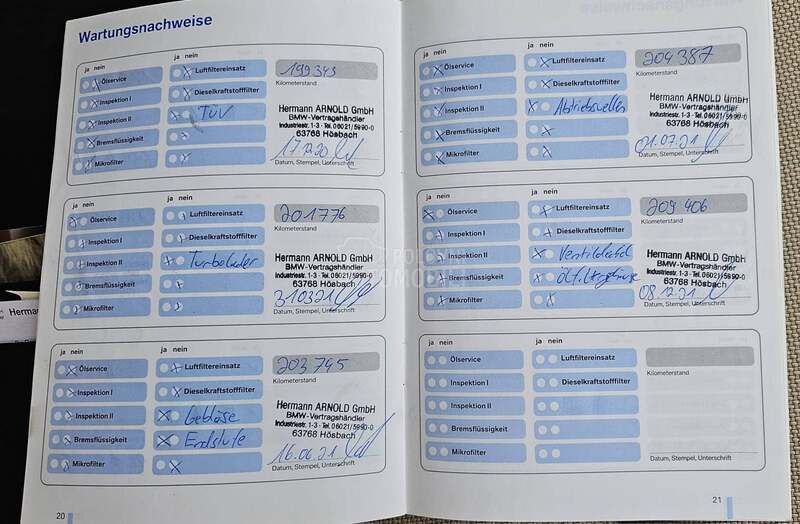 Wartungsnachweise
ja nein
ja nein
Ölservice
Luftfiltereinsatz
199343
Kilometerstand
Inspektion I
Dieselkraftstofffilter
Inspektion II
TÜV
Hermann ARNOLD GmbH
BMW-Vertragshändler
Industriestr. 1-3 · Tel. 06021/5990-0
63768 Hösbach
Bremsflüssigkeit
Mikrofilter
Datum, Stempel, Unterschrift
ja nein
ja nein
Ölservice
Luftfiltereinsatz
201776
Kilometerstand
Inspektion I
Dieselkraftstofffilter
Inspektion II
Turbolader
Hermann ARNOLD GmbH
BMW-Vertragshändler
Industriestr. 1-3 · Tel. 06021/5990-0
63768 Hösbach
Bremsflüssigkeit
310321
Mikrofilter
Datum, Stempel, Unterschrift
ja nein
ja nein
Ölservice
Luftfiltereinsatz
203745
Kilometerstand
Inspektion I
Dieselkraftstofffilter
Inspektion II
Gebläse
Hermann ARNOLD GmbH
BMW-Vertragshändler
Industriestr. 1-3 · Tel. 06021/5990-0
63768 Hösbach
Bremsflüssigkeit
Endstufe
16.06.21
Mikrofilter
Datum, Stempel, Unterschrift
20
ja nein
ja nein
Ölservice
Luftfiltereinsatz
204387
Kilometerstand
Inspektion I
Dieselkraftstofffilter
Inspektion II
Abtriebswellen
Hermann ARNOLD GmbH
BMW-Vertragshändler
Industriestr. 1-3 · Tel. 06021/5990-0
63768 Hösbach
Bremsflüssigkeit
01.07.21
Mikrofilter
Datum, Stempel, Unterschrift
ja nein
ja nein
Ölservice
Luftfiltereinsatz
209406
Kilometerstand
Inspektion I
Dieselkraftstofffilter
Inspektion II
Hermann ARNOLD GmbH
BMW-Vertragshändler
Industriestr. 1-3 · Tel. 06021/5990-0
63768 Hösbach
Bremsflüssigkeit
08.12.21
Mikrofilter
Datum, Stempel, Unterschrift
ja nein
ja nein
Ölservice
Luftfiltereinsatz
Kilometerstand
Inspektion I
Dieselkraftstofffilter
Inspektion II
Bremsflüssigkeit
Mikrofilter
Datum, Stempel, Unterschrift
21
Hermann